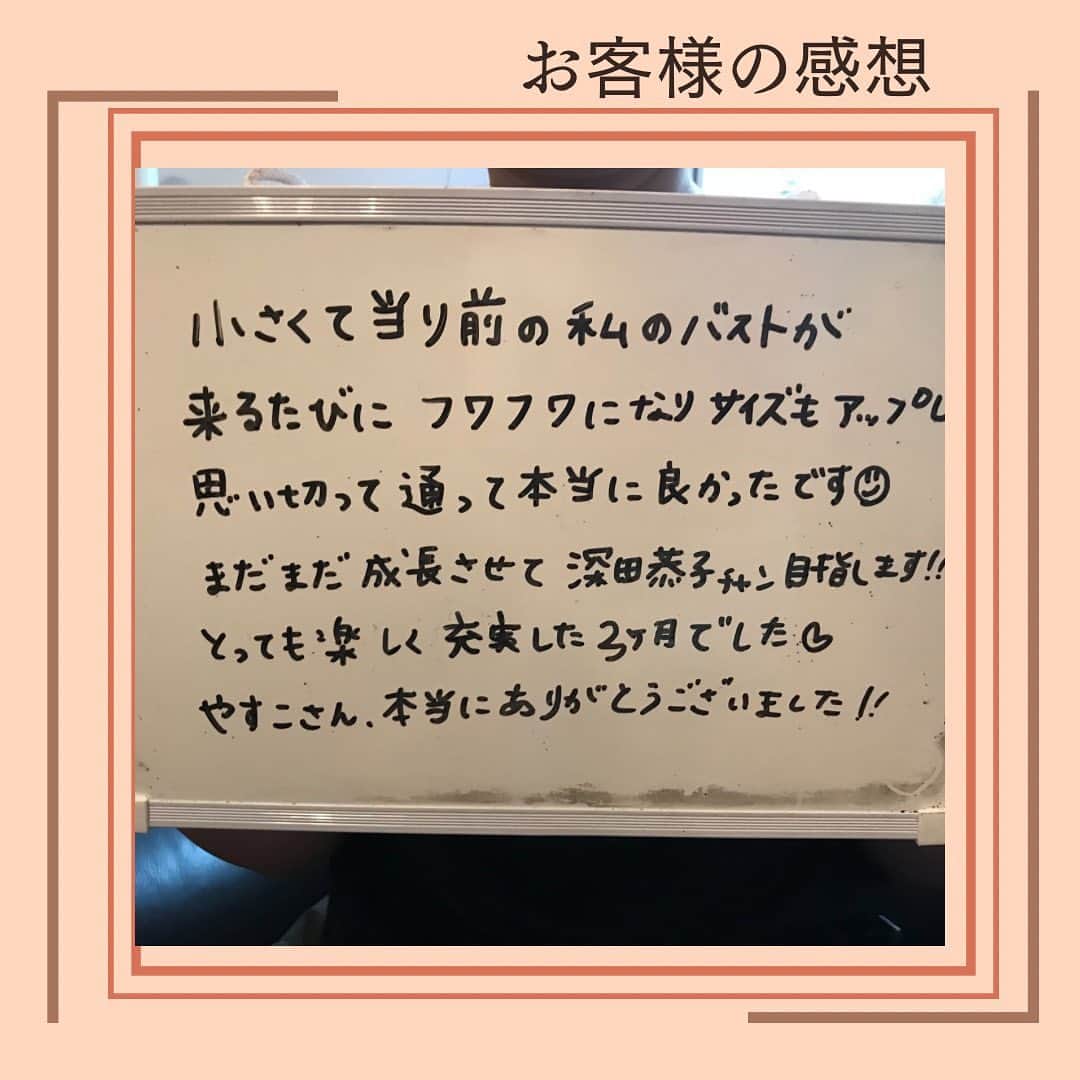 お客様の感想
小さくて当り前の私のバストが
来るたびにフワフワになりサイズもアップし
思い切って通って本当に良かったです☺
まだまだ成長させて深田恭子チャン目指します!!
とっても楽しく充実した3ヶ月でした♡
やすこさん、本当にありがとうございました!!